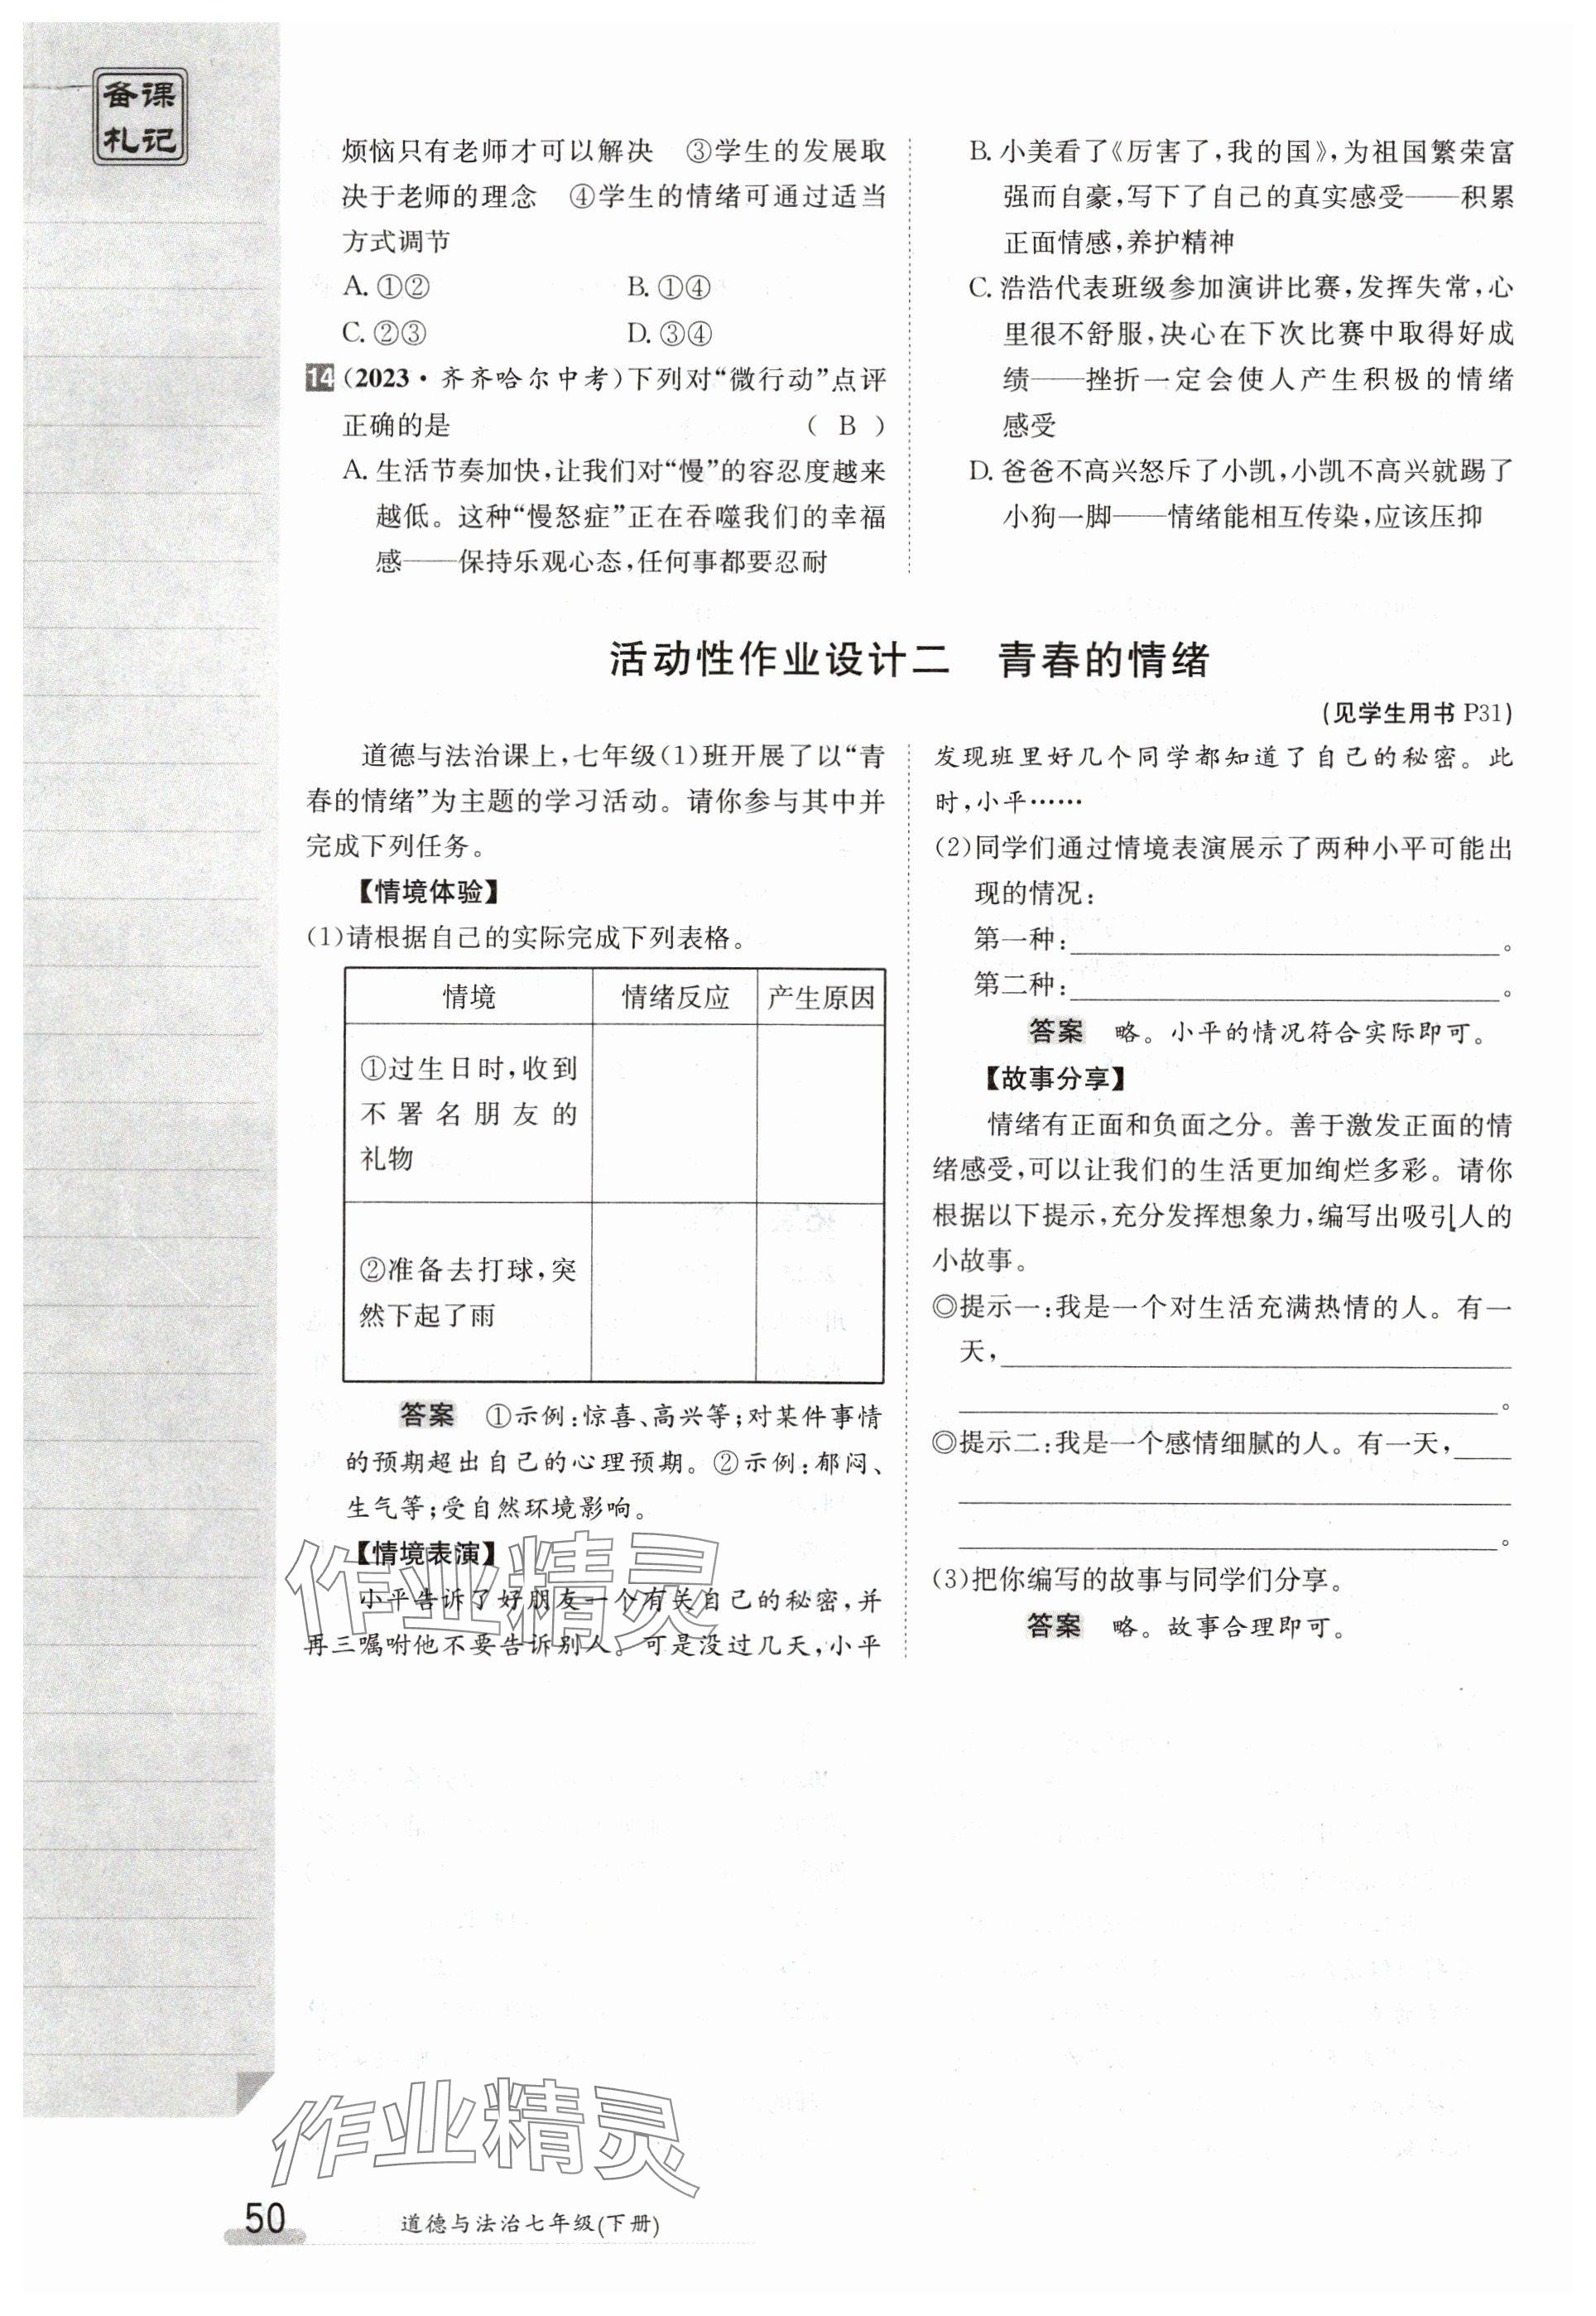 备课
札记
烦恼只有老师才可以解决　③学生的发展取
决于老师的理念　④学生的情绪可通过适当
方式调节
A. ①②　B. ①④
C. ②③　D. ③④
14 (2023·齐齐哈尔中考)下列对“微行动”点评
正确的是　( B )
A. 生活节奏加快,让我们对“慢”的容忍度越来
越低。这种“慢怒症”正在吞噬我们的幸福
感——保持乐观心态,任何事都要忍耐
B. 小美看了《厉害了,我的国》,为祖国繁荣富
强而自豪,写下了自己的真实感受——积累
正面情感,养护精神
C. 浩浩代表班级参加演讲比赛,发挥失常,心
里很不舒服,决心在下次比赛中取得好成
绩——挫折一定会使人产生积极的情绪
感受
D. 爸爸不高兴怒斥了小凯,小凯不高兴就踢了
小狗一脚——情绪能相互传染,应该压抑
活动性作业设计二　青春的情绪
(见学生用书 P31)
道德与法治课上,七年级(1)班开展了以“青
春的情绪”为主题的学习活动。请你参与其中并
完成下列任务。
【情境体验】
(1)请根据自己的实际完成下列表格。
情境　情绪反应　产生原因
①过生日时,收到
不署名朋友的
礼物
②准备去打球,突
然下起了雨
答案　①示例:惊喜、高兴等;对某件事情
的预期超出自己的心理预期。②示例:郁闷、
生气等;受自然环境影响。
【情境表演】
小平告诉了好朋友一个有关自己的秘密,并
再三嘱咐他不要告诉别人。可是没过几天,小平
发现班里好几个同学都知道了自己的秘密。此
时,小平……
(2)同学们通过情境表演展示了两种小平可能出
现的情况:
第一种:　。
第二种:　。
答案　略。小平的情况符合实际即可。
【故事分享】
情绪有正面和负面之分。善于激发正面的情
绪感受,可以让我们的生活更加绚烂多彩。请你
根据以下提示,充分发挥想象力,编写出吸引人的
小故事。
◎提示一:我是一个对生活充满热情的人。有一
天,
。
◎提示二:我是一个感情细腻的人。有一天,
。
(3)把你编写的故事与同学们分享。
答案　略。故事合理即可。
作业精灵
作业精灵
50
道德与法治七年级(下册)